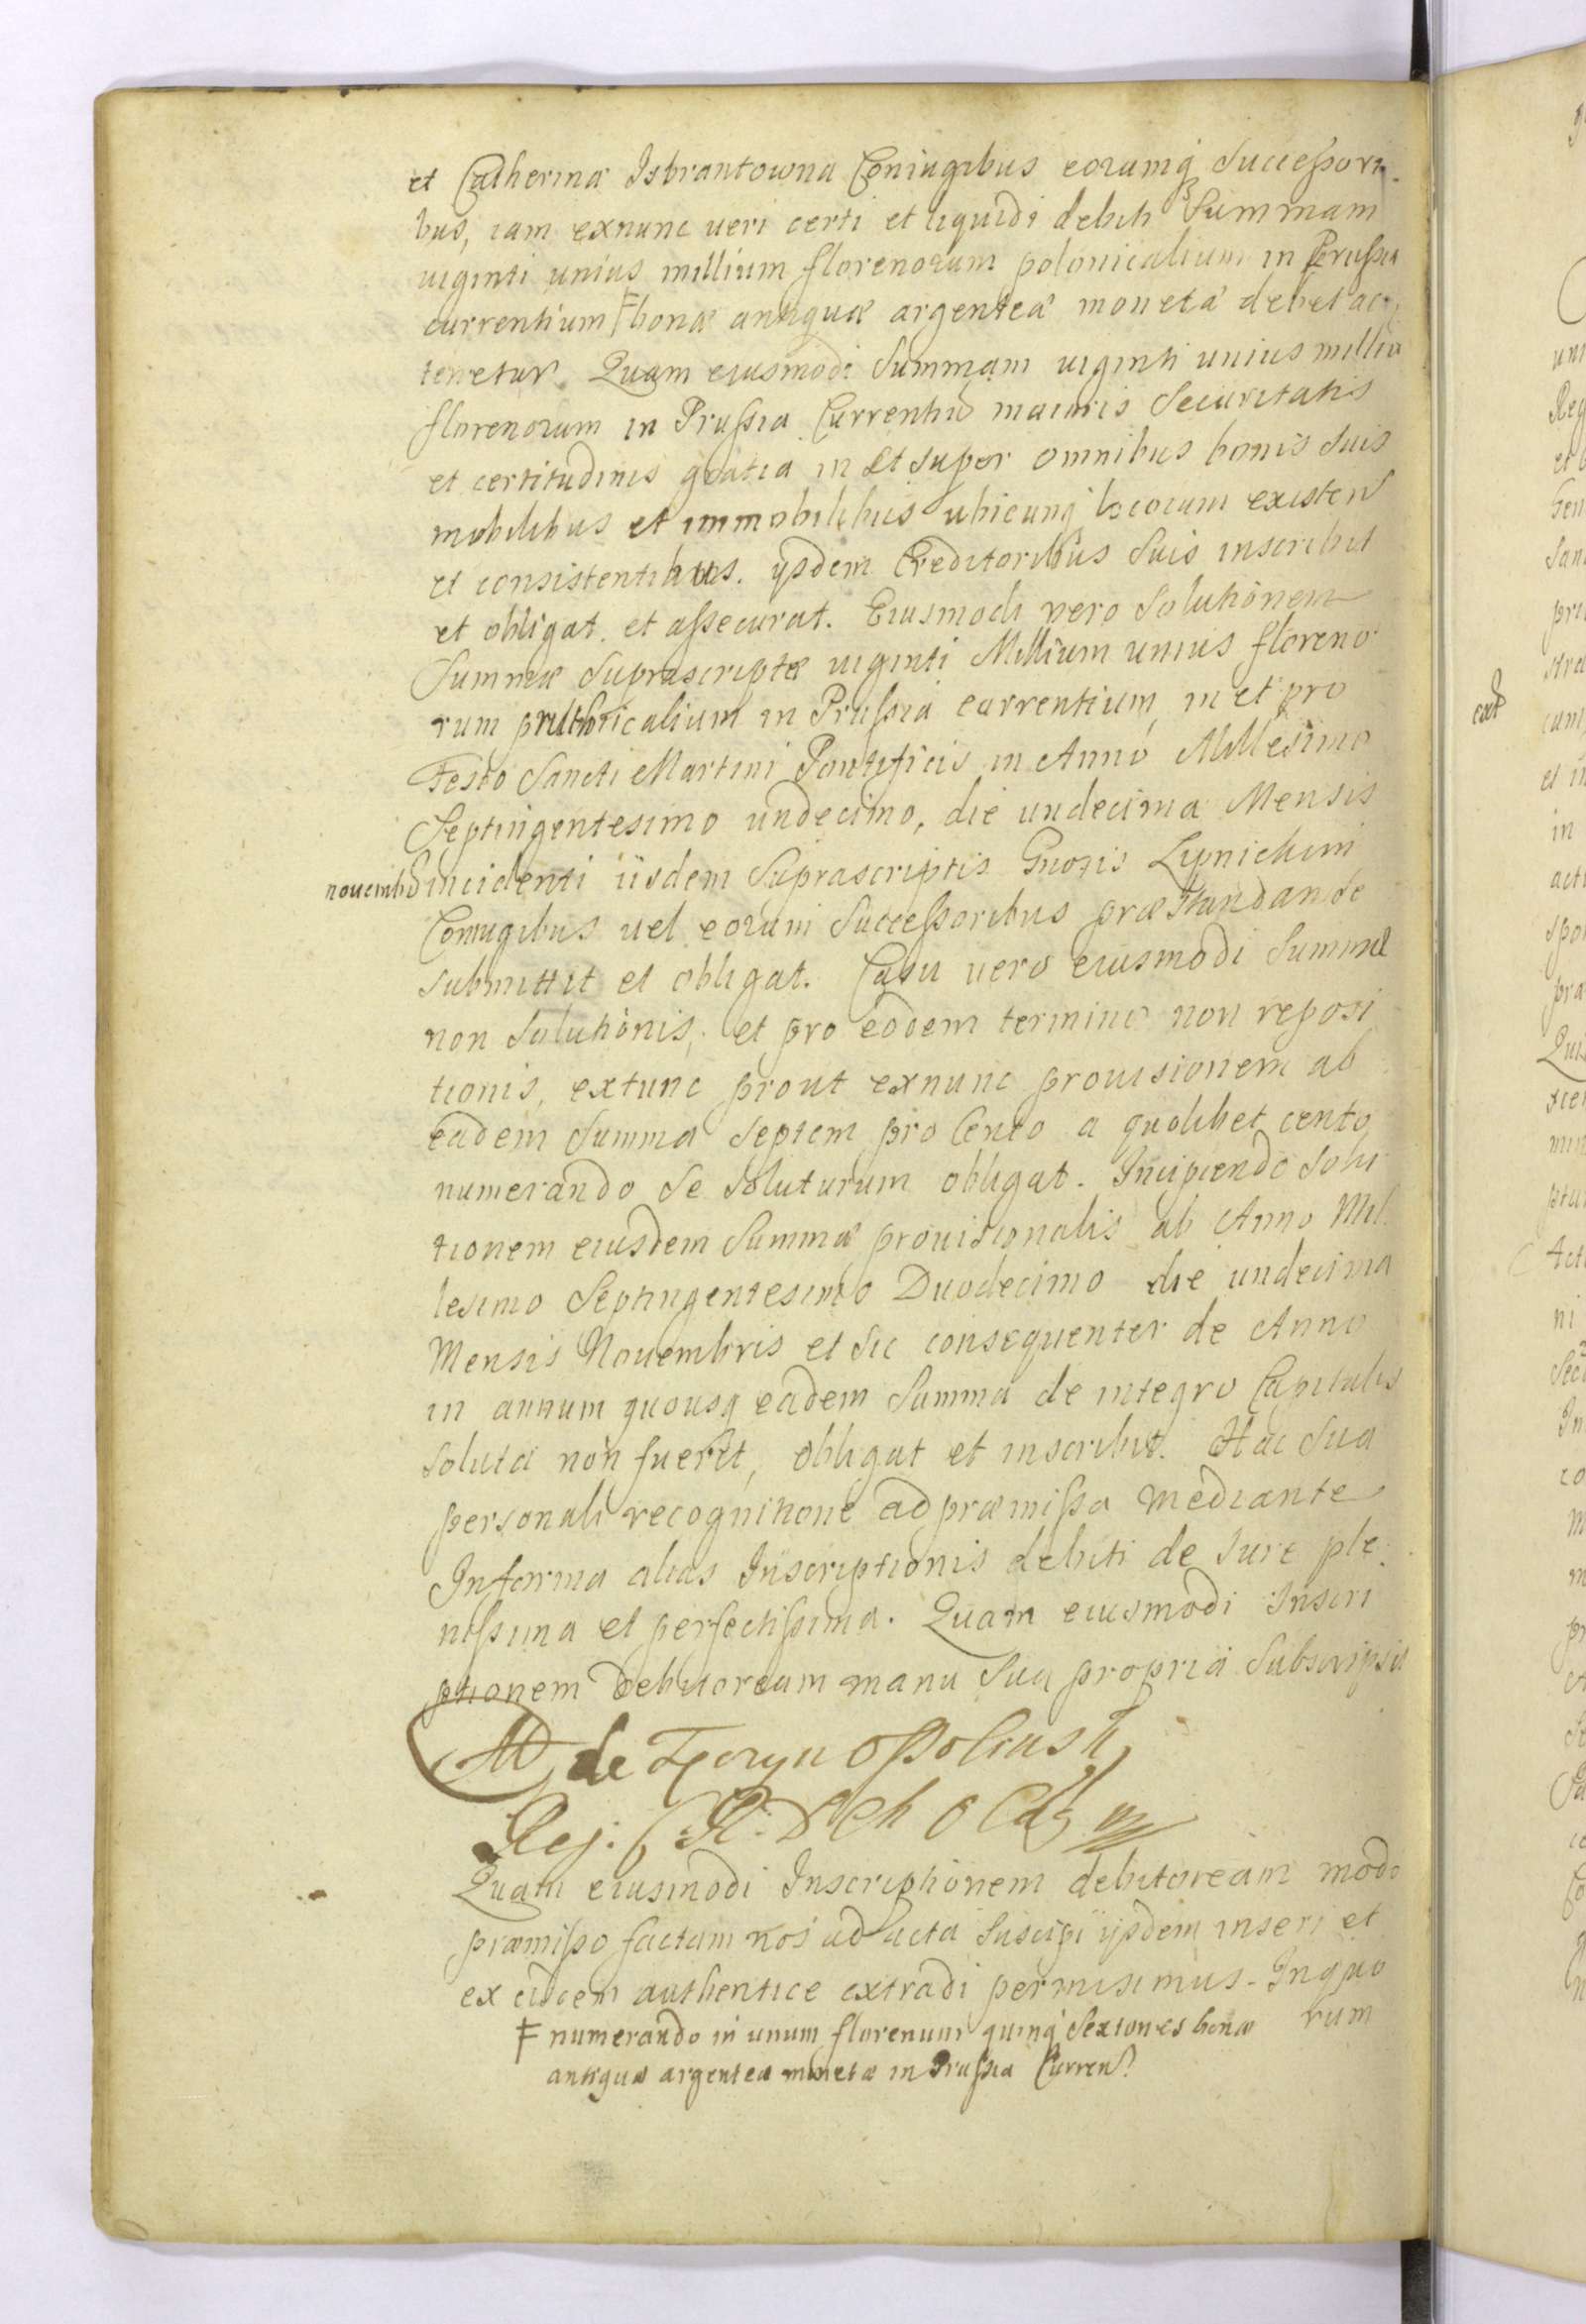 et Catherinæ Isbrantowna Coniugibus eorumq Successori-
bus, iam exnunc ueri certi et liquidi debiti Summam
uiginti unius millium florenorum polonicalium in Prussia
currentium bonæ antiquæ argenteæ monetæ debet ac
tenetur. Quam eiusmodi Summam uiginti unius millia
florenorum in Prussia Currentiũ maioris Securitatis
et certitudinis gratia in et super omnibus bonis Suis
mobilibus et immobilibus ubicunq locorum existen
et consistentibus. ijsdem Creditoribus Suis inscribit
et obligat. et assecurat. Eiusmodi vero Solutionem
Summæ Suprascriptæ uiginti Millium unius floreno
rum in Prussia currentium, in et pro
Festo Sancti Martini Pontificis in Anno Millesimo
Septingentesimo undecimo, die undecima Mensis
nouemb incidenti iisdem Suprascriptis Gnosis
Coniugibus uel eorum Successoribus præstandam se
submittit et obligat. Casu uero eiusmodi Summæ
non Solutionis, et pro eodem termino non reposi
tionis, extunc prout exnunc prouisionem ab
eadem Summa Septem pro Cento a quolibet cento
numerando se soluturum obligat. Incipiendo Solu
tionem eiusdem Summæ prouisionalis ab Anno Mil
lesimo Septingentesimo Duodecimo die undecima
Mensis Nouembris et sic consequenter de Anno
in annum quousq eadem Summa de integro Capitalis
soluta non fuerit, obligat et inscribit. Hac Sua
personali recognitione ad præmissa mediante
Informa alias Inscriptionis debiti de Iure ple
nissima et perfectissima. Quam eiusmodi Inscri
ptionem Debitoream manu Sua propria Subscripsit
de
Quam eiusmodi Inscriptionem debitoream modo
præmisso factam nos ad acta Suscipi ijsdem inseri et
ex eisdem authentice extradi permisimus. In quo
rum
Ŧ numerando in unum florenum quinq Sextones bonæ
antiquæ argenteæ monetæ in Prussia Curren